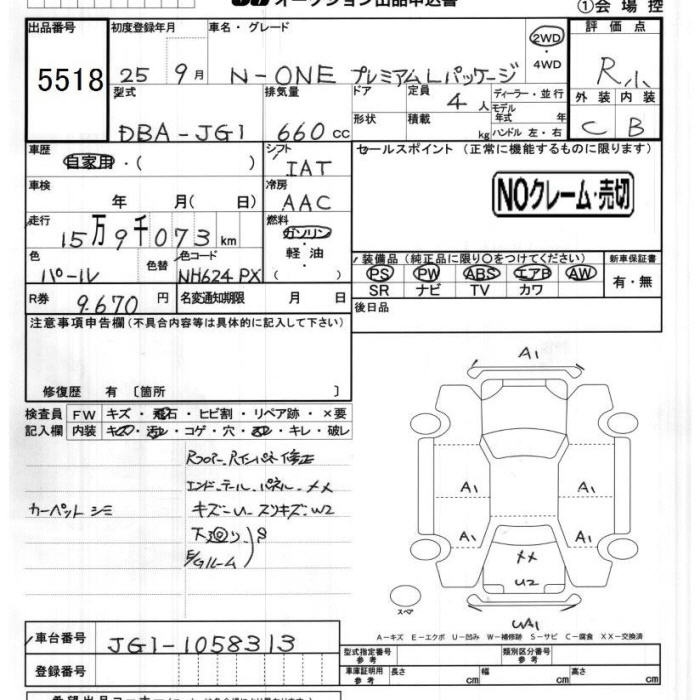 オークション出品申込書
①会場控
出品番号
5518
初度登録年月
25 9月
車名・グレード
N-ONE プレミアムLパッケージ
2WD
・4WD
評価点
R小
型式
DBA-JG1
排気量
660 cc
ドア
形状
定員
4人
積載
kg
ディーラー・並行
モデル
年式 年
ハンドル 左・右
外装 内装
C B
車歴
自家用・( )
シフト
IAT
セールスポイント (正常に機能するものに限ります)
NOクレーム・売切
車検
年 月( 日)
冷房
AAC
走行
15万9千073km
燃料
ガソリン
・
軽油
・
( )
色
パール
色替
色コード
NH624PX
装備品 (純正品に限り○をつけてください)
PS PW ABS エアB AW
SR ナビ TV カワ
新車保証書
有・無
R券
9,670円
名変通知期限 月 日
後日品
注意事項申告欄 (不具合内容等は具体的に記入して下さい)
修復歴 有 〔箇所 〕
検査員
記入欄
FW キズ・飛石・ヒビ割・リペア跡・×要
内装 キズ・汚れ・コゲ・穴・ キレ・破レ
カーペットシミ
Rフロアー、Rインパネ修正
エンド、テール、パネル、××
キズ-U-スリキズ-W2
下廻り
E/Gルーム
S
A1
A1
A1
A1
A1
××
U2
UA1
スペア
A-キズ E-エクボ U-凹み W-補修跡 S-サビ C-腐食 XX-交換済
車台番号
JG1-1058313
登録番号
型式指定番号
参考
類別区分番号
参考
車庫証明用
参考
長さ cm
幅 cm
高さ cm